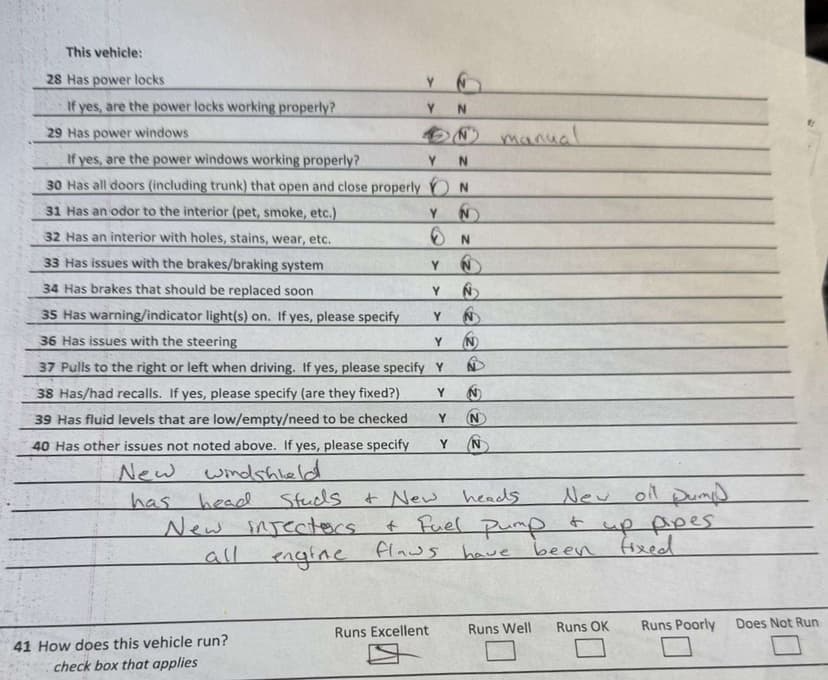 This vehicle:
28 Has power locks Y N
If yes, are the power locks working properly? Y N
29 Has power windows Y N manual
If yes, are the power windows working properly? Y N
30 Has all doors (including trunk) that open and close properly Y N
31 Has an odor to the interior (pet, smoke, etc.) Y N
32 Has an interior with holes, stains, wear, etc. Y N
33 Has issues with the brakes/braking system Y N
34 Has brakes that should be replaced soon Y N
35 Has warning/indicator light(s) on. If yes, please specify Y N
36 Has issues with the steering Y N
37 Pulls to the right or left when driving. If yes, please specify Y N
38 Has/had recalls. If yes, please specify (are they fixed?) Y N
39 Has fluid levels that are low/empty/need to be checked Y N
40 Has other issues not noted above. If yes, please specify Y N
New windshield
has head studs + New heads New oil pump
New injectors + Fuel pump + up pipes
all engine flaws have been fixed
Runs Excellent Runs Well Runs OK Runs Poorly Does Not Run
41 How does this vehicle run?
check box that applies